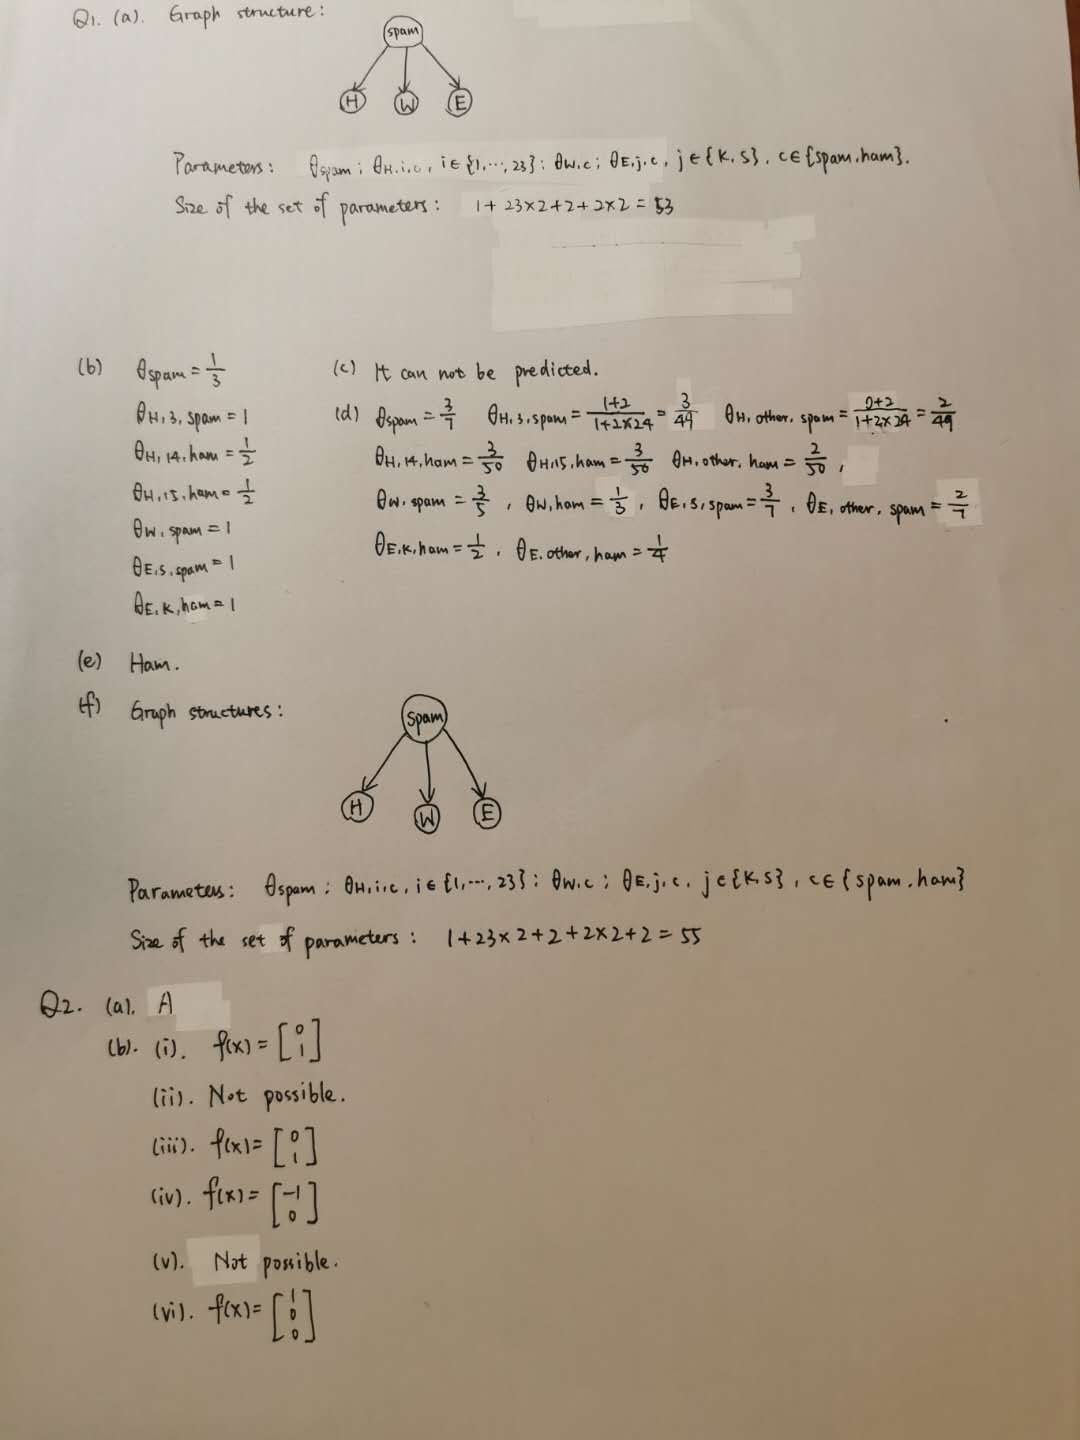 Q1. (a). Graph structure:
spam
H W E
Parameters: θspam; θH,i,c, i∈{1,…,23}; θW,c; θE,j,c, j∈{K,S}, c∈{spam,ham}.
Size of the set of parameters: 1+23×2+2+2×2=53
(b) θspam=1/3
θH,3,spam=1
θH,14,ham=1/2
θH,15,ham=1/2
θW,spam=1
θE,S,spam=1
θE,K,ham=1
(c) It can not be predicted.
(d) θspam=3/7 θH,3,spam=(1+2)/(1+2×24)=3/49 θH,other,spam=(0+2)/(1+2×24)=2/49
θH,14,ham=3/50 θH,15,ham=3/50 θH,other,ham=2/50,
θW,spam=3/5, θW,ham=1/3, θE,S,spam=3/7, θE,other,spam=2/7
θE,K,ham=1/2, θE,other,ham=1/4
(e) Ham.
(f) Graph structures:
spam
H W E
Parameters: θspam; θH,i,c, i∈{1,…,23}; θW,c; θE,j,c, j∈{K,S}, c∈{spam,ham}
Size of the set of parameters: 1+23×2+2+2×2+2=55
Q2. (a). A
(b). (i). f(x)=[0 1]
(ii). Not possible.
(iii). f(x)=[0 1]
(iv). f(x)=[-1 0]
(v). Not possible.
(vi). f(x)=[1 0 0]